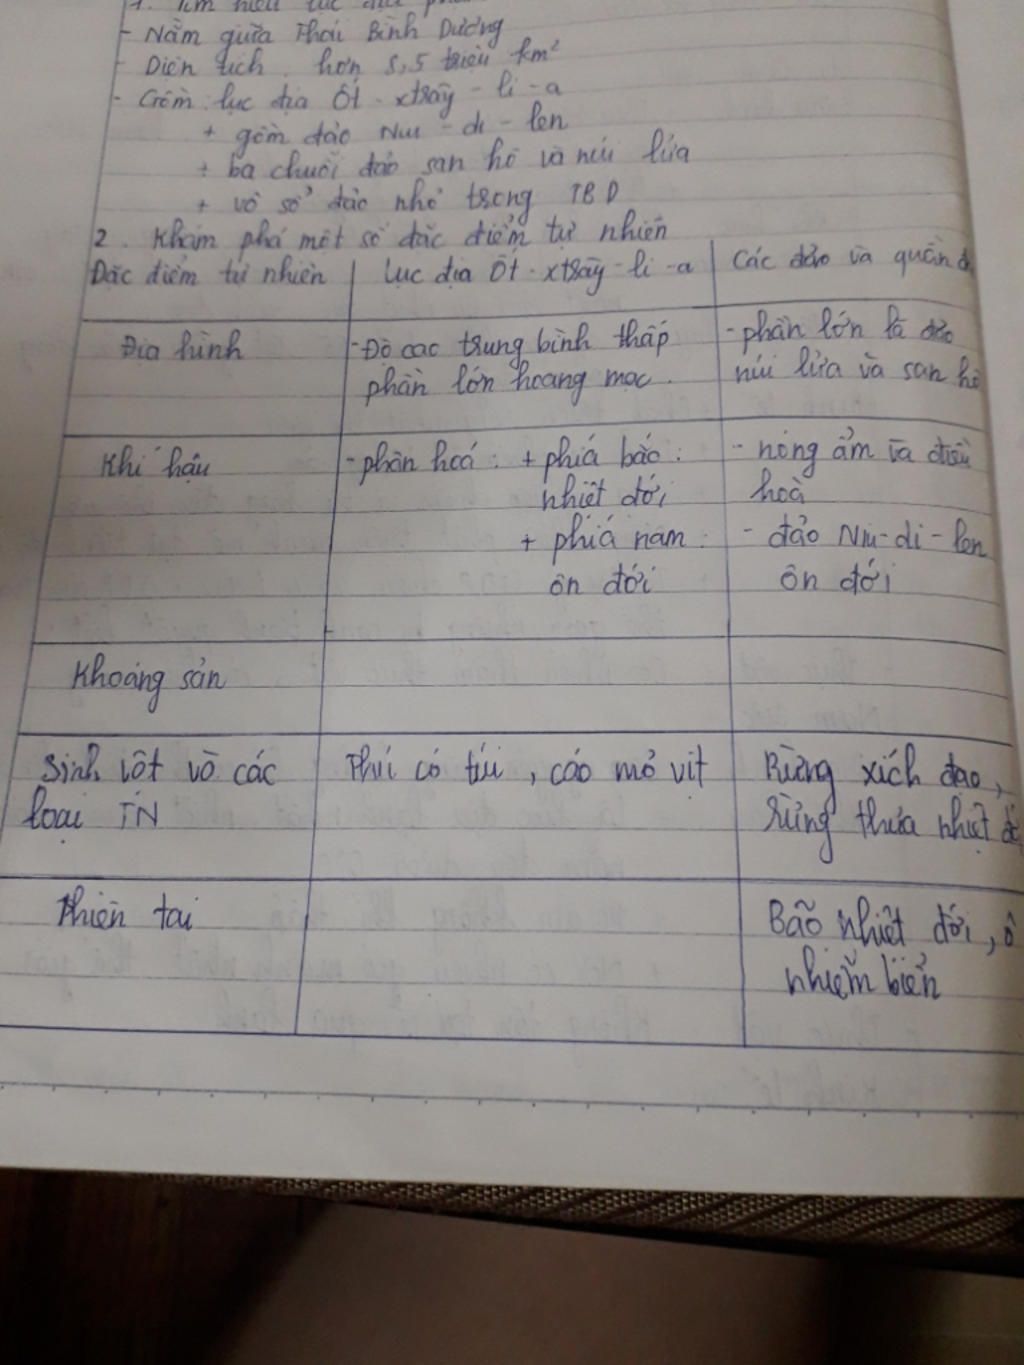 1. Tìm hiểu lục địa
- Nằm giữa Thái Bình Dương
- Diện tích hơn 8,5 triệu km²
- Gồm: lục địa Ốt-xtrây-li-a
+ gồm đảo Niu-di-len
+ ba chuỗi đảo san hô và núi lửa
+ vô số đảo nhỏ trong TBD
2. Khám phá một số đặc điểm tự nhiên
Đặc điểm tự nhiên
Lục địa Ốt-xtrây-li-a
Các đảo và quần
Địa hình
- Độ cao trung bình thấp
phần lớn hoang mạc.
- phần lớn là đảo
núi lửa và san hô
Khí hậu
- phân hoá: + phiá bắc:
nhiệt đới
+ phiá nam:
ôn đới
- nóng ẩm và điều
hoà
- đảo Niu-di-len
ôn đới
Khoáng sản
Sinh vật và các
loại TN
Thú có túi, cáo mỏ vịt
Rừng xích đạo,
rừng thưa nhiệt
Thiên tai
Bão nhiệt đới, ô
nhiễm biển